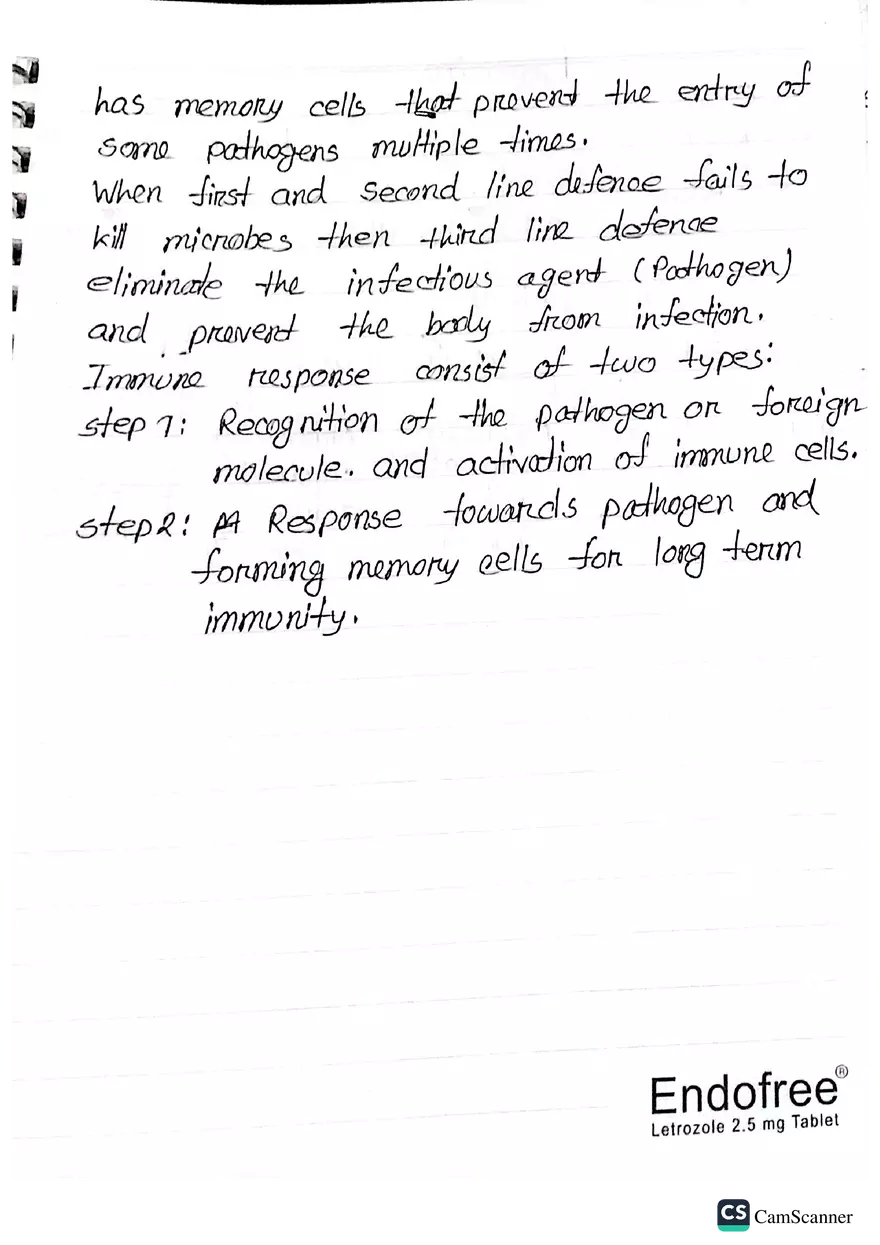 has memory cells that prevent the entry of
same pathogens multiple times.
When first and second line defence fails to
kill microbes then third line defence
eliminate the infectious agent (Pathogen)
and prevent the body from infection.
Immune response consist of two types:
step 1: Recognition of the pathogen or foreign
molecule. and activation of immune cells.
step 2: A Response towards pathogen and
forming memory cells for long term
immunity.
Endofree®
Letrozole 2.5 mg Tablet
CS CamScanner